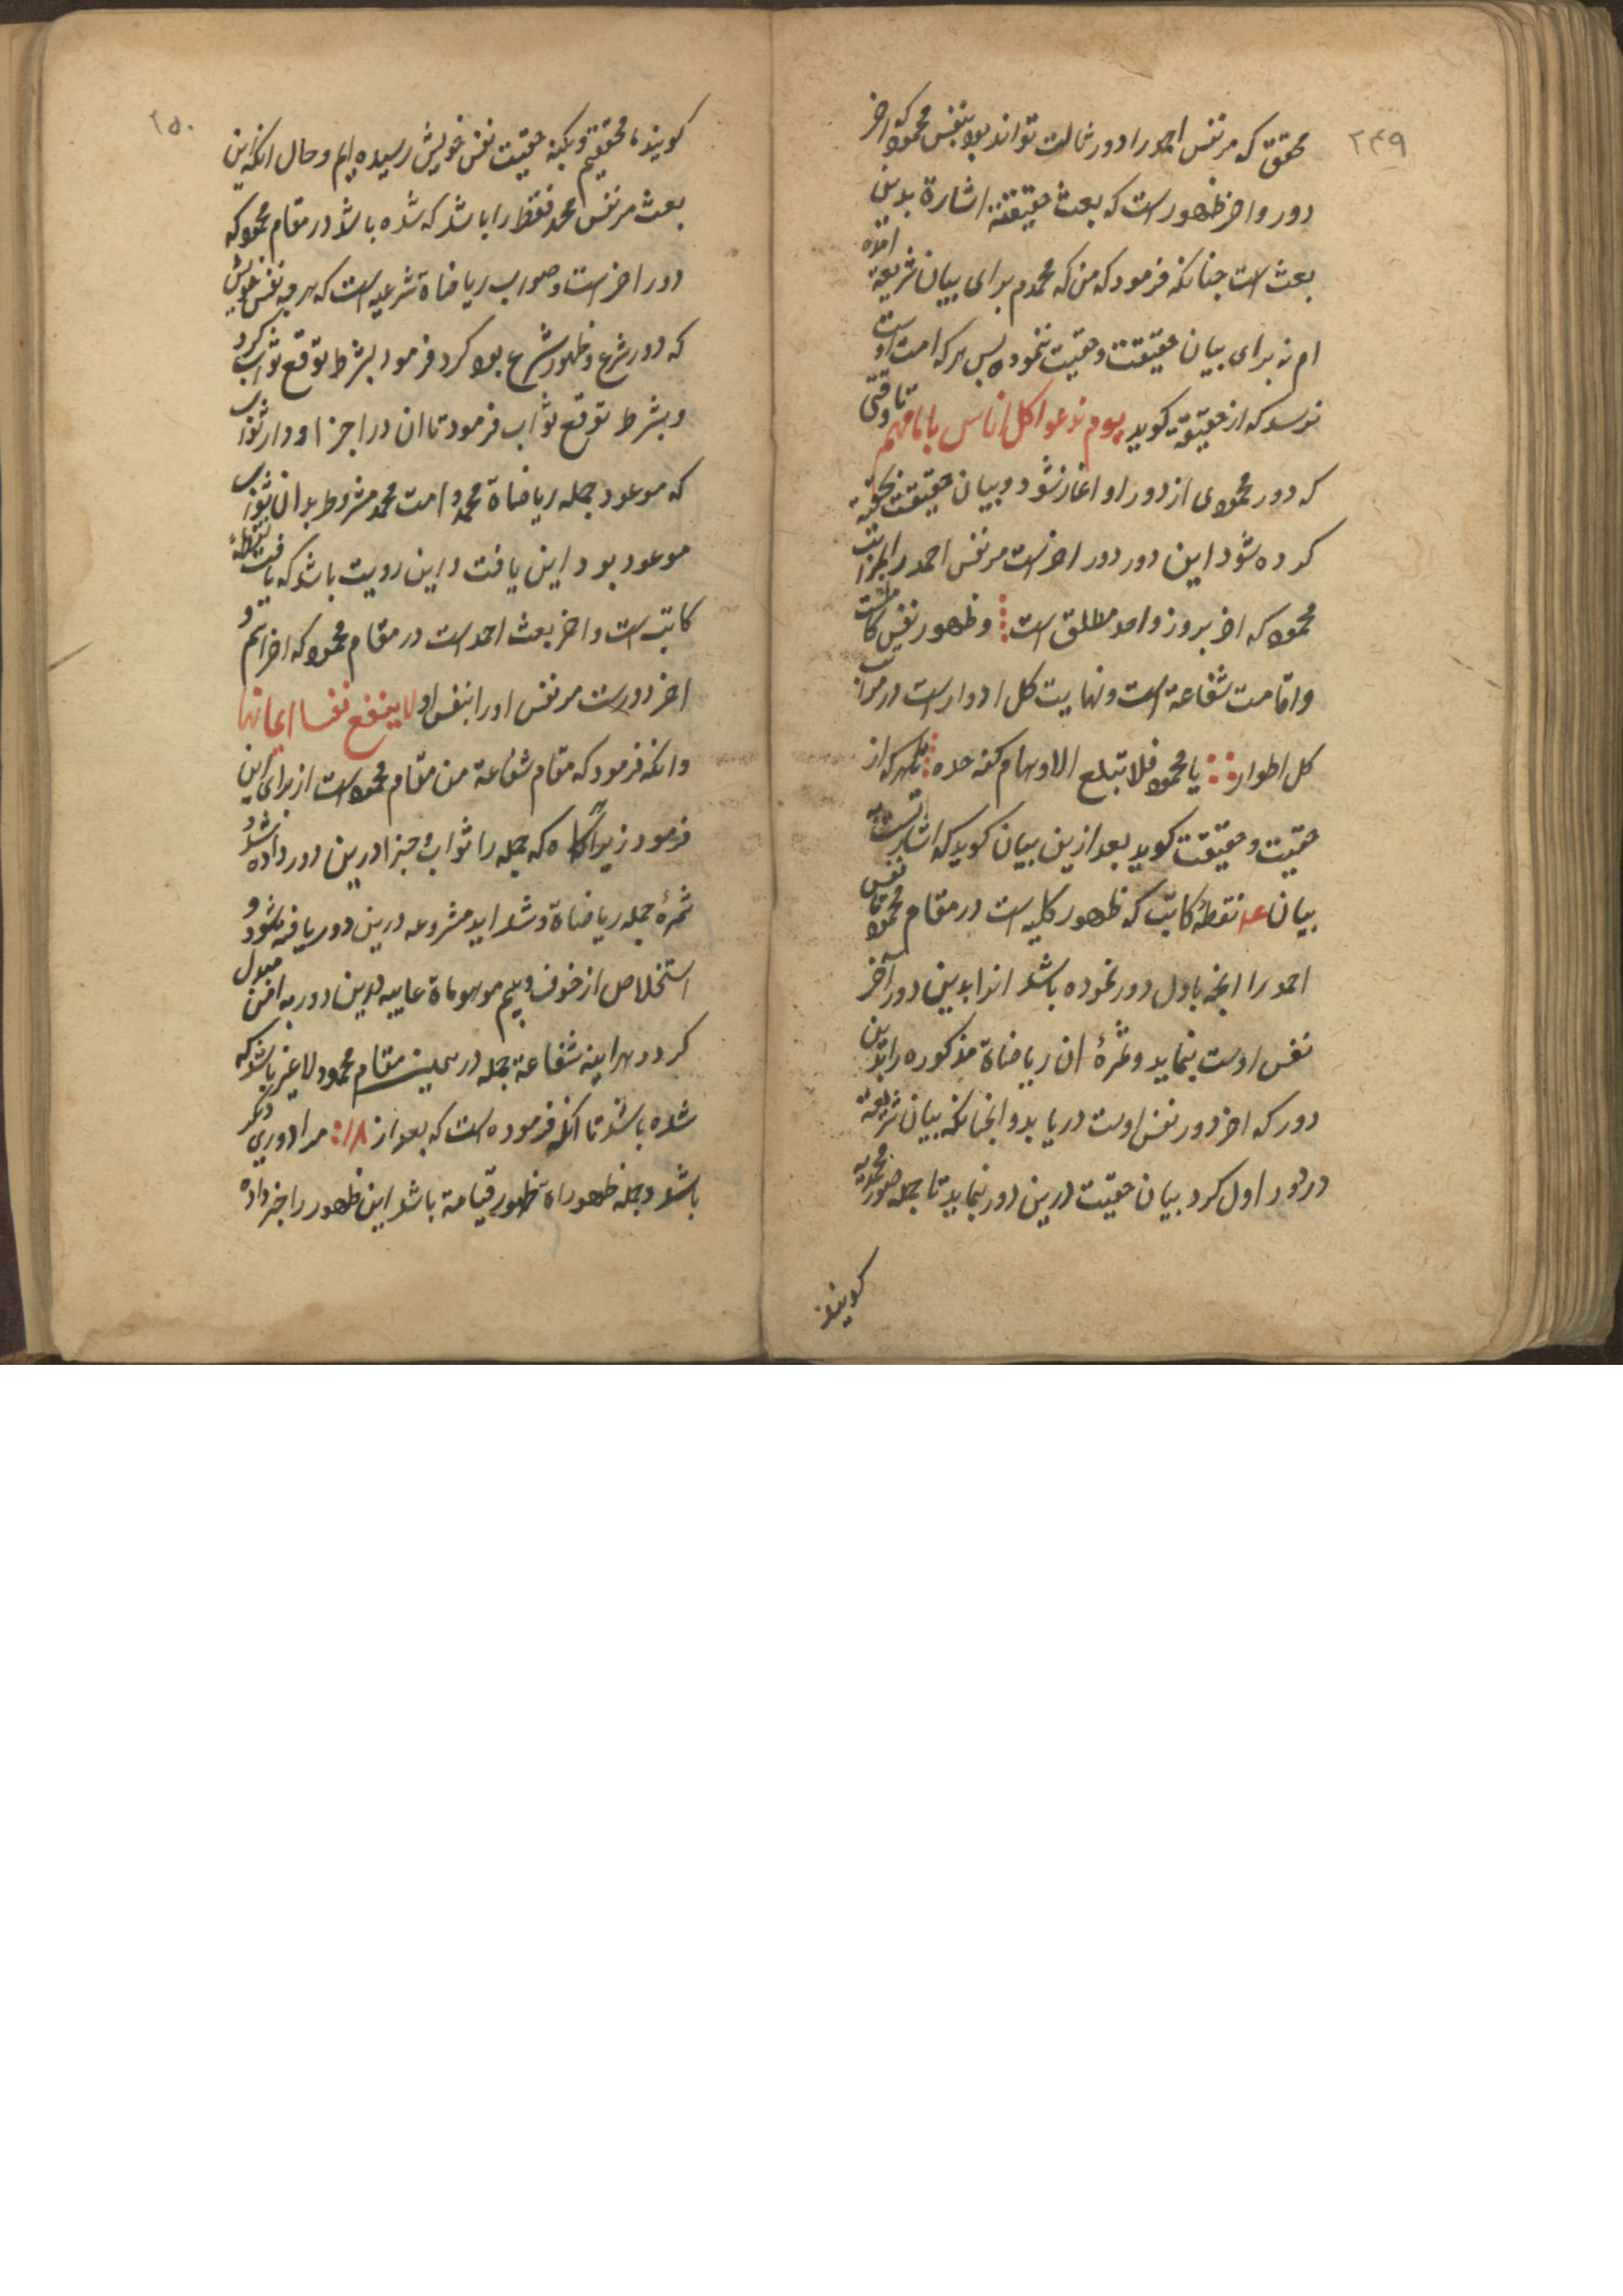 ۲۴۹
محقق که مر نفس احمد را دور ثالث تواند بود بنفس محمود که اخر
دور و اخر ظهور است که بعث حقیقته اشارة بدین
بعث است چنانکه فرمود که من که محمدم برای بیان شریعة امده
ام نه برای بیان حقیقت و حقیت ننموده پس هر که امت اوست
نرسد که از حقیقة گوید یوم ندعوا کل اناس بامامهم تا وقتی
که دور محمودی از دور او اغاز شود و بیان حقیقت بحقیة
کرده شود این دور دور اخر است مر نفس احمد را بمراتب
محمود که اخر بروز واحد مطلق است و ظهور نفس کاملست
و اقامت شفاعة است و نهایت کل ادوار است در مراتب
کل اطوار یا محمود فلا تبلغ الاوهام کنه حده تا هر که از
حقیت و حقیقت گوید بعد ازین بیان گوید که اشارتست به
بیان نقطهٔ کاتب که ظهور کلیه است در مقام محمود تا نفس
احمد را انچه باول دور نموده باشد انرا بدین دور آخر
نفس اوست بنماید و ثمرهٔ ان ریاضاة مذکوره را بدین
دور که اخر دور نفس اوست دریابد و انچنانکه بیان شریعة
در دور اول کرد بیان حقیت درین دور بنماید تا جمله صور محمدیه
گویند
۲۵۰
گویند ما محققیم و بکنه حقیت نفس خویش رسیده ایم و حال انکه این
بعث مر نفس محمد فقط را باشد که شده باشد در مقام محمود که
دور اخر است و صواب ریاضاة شرعیه است که هر چه نفس خویش
که دور شرع و ظهور شرع بود کرد فرمود بشرط توقع ثواب کرد
و بشرط توقع ثواب فرمود تا ان در اجزا و دار ثواب
که موعود جمله ریاضاة محمد و امت محمد مشروط بدان ثواب
موعود بود این یافت و این رویت باشد که یافت نقطهٔ
کاتب است و اخر بعث احمد است در مقام محمود که اخر اسم و
اخر دورست مر نفس او را بنفس او لا ینفع نفسا ایمانها
و انکه فرمود که مقام شفاعة من مقام محمود است از برای این
فرمود زیرا که جمله را ثواب و جزا درین دور داده شد و
ثمرهٔ جمله ریاضاة و شداید مشروعه درین دور یافته شود و
استخلاص از خوف و بیم موهوماة عالیه بدین دور به امن مبدل
کردد هراینه شفاعة جمله در همین مقام محمود لا غیر باشد که
شده باشد تا انکه فرموده است که بعد از ۱۸ مرا دوری دیگر
باشد و جمله ظهوراة ظهور قیامة باشد این ظهور را خبر داده